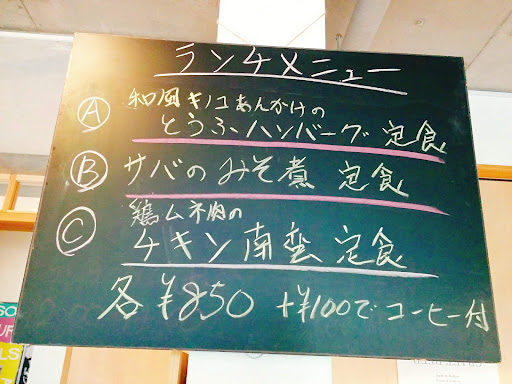 ランチメニュー
Ⓐ 和風キノコあんかけの
とうふハンバーグ 定食
Ⓑ サバのみそ煮 定食
Ⓒ 鶏ムネ肉の
チキン南蛮 定食
各¥850 +¥100でコーヒー付